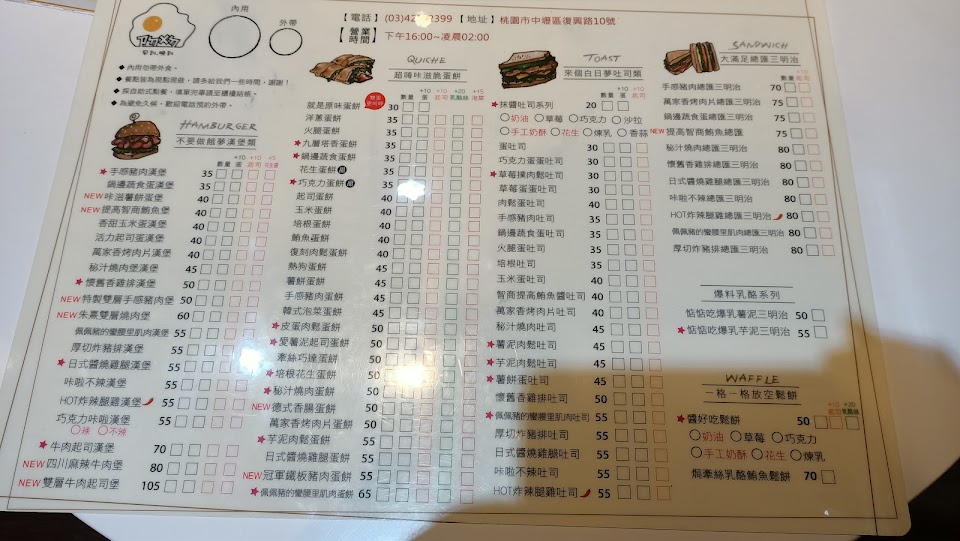 內用
外帶
【電話】(03)42 2399【地址】桃園市中壢區復興路10號
【營業時間】下午16:00~凌晨02:00
早到、晚到
◆內用恕帶外食。
◆餐點皆為現點現做,請多給我們一些時間,謝謝!
◆採自助式點餐,填單完畢請至櫃檯結帳。
◆為避免久候,歡迎電話預約外帶。
HAMBURGER
不要做餓夢漢堡類
+10 +10 +5
數量 蛋 起司
★手感豬肉漢堡 35
鍋邊蔬食蛋漢堡 35
NEW咔滋薯餅蛋堡 40
NEW★提高智商鮪魚堡 40
香甜玉米蛋漢堡 40
活力起司蛋漢堡 40
萬家香烤肉片漢堡 40
秘汁燒肉堡漢堡 45
★懷舊香雞排漢堡 50
NEW特製雙層手感豬肉堡 50
NEW朱熹雙層燒肉堡 60
佩佩豬的蠻腰里肌肉漢堡 55
厚切炸豬排漢堡 55
★日式醬燒雞腿漢堡 55
咔啦不辣漢堡 55
HOT炸辣腿雞漢堡 55
巧克力咔啦漢堡 55
○辣 ○不辣
★牛肉起司漢堡 70
NEW四川麻辣牛肉堡 80
NEW雙層牛肉起司堡 105
QUICHE
超嗨咔滋脆蛋餅
+10 +10 +20 +15
數量 蛋 起司 乳酪絲 泡菜
就是原味蛋餅 30
洋蔥蛋餅 35
火腿蛋餅 35
★九層塔香蛋餅 35
★鍋邊蔬食蛋餅 35
花生蛋餅 35
★巧克力蛋餅 35
起司蛋餅 40
玉米蛋餅 40
培根蛋餅 40
鮪魚蛋餅 40
復刻肉鬆蛋餅 40
熱狗蛋餅 45
薯餅蛋餅 45
手感豬肉蛋餅 45
韓式泡菜蛋餅 45
★皮蛋肉鬆蛋餅 50
★愛薯泥起司蛋餅 50
牽絲巧達蛋餅 50
★培根花生蛋餅 50
★秘汁燒肉蛋餅 50
NEW德式香腸蛋餅 50
萬家香烤肉片蛋餅 50
★芋泥肉鬆蛋餅 55
日式醬燒雞腿蛋餅 55
NEW冠軍鐵板豬肉蛋餅 55
★佩佩豬的蠻腰里肌肉蛋餅 65
TOAST
來個白日夢吐司類
+10 +10
數量 蛋 起司
★抹醬吐司系列 20
○奶油 ○草莓 ○巧克力 ○沙拉
○手工奶酥 ○花生 ○煉乳 ○香蒜
蛋吐司 30
巧克力蛋蛋吐司 35
★草莓撲肉鬆吐司 35
草莓蛋蛋吐司 35
肉鬆蛋吐司 35
手感豬肉吐司 35
鍋邊蔬食蛋吐司 35
火腿蛋吐司 35
培根吐司 35
玉米蛋吐司 40
智商提高鮪魚醬吐司 40
萬家香烤肉片吐司 40
秘汁燒肉吐司 45
★薯泥肉鬆吐司 45
★芋泥肉鬆吐司 45
★薯餅蛋吐司 45
懷舊香雞排吐司 50
★佩佩豬的蠻腰里肌肉吐司 55
厚切炸豬排吐司 55
日式醬燒雞腿吐司 55
咔啦不辣吐司 55
HOT炸辣腿雞吐司 55
SANDWICH
大滿足總匯三明治
+10
數量 起司
手感豬肉總匯三明治 70
萬家香烤肉片三明治 75
鍋邊蔬食蛋總匯三明治 75
NEW提高智商鮪魚總匯 75
秘汁燒肉總匯三明治 80
懷舊香雞排總匯三明治 80
日式醬燒雞腿總匯三明治 80
咔啦不辣總匯三明治 80
HOT炸辣腿雞總匯三明治 80
佩佩豬的蠻腰里肌肉總匯三明治 80
厚切炸豬排總匯三明治 80
爆料乳酪系列
惦惦吃爆乳薯泥三明治 50
★惦惦吃爆乳芋泥三明治 55
WAFFLE
一格一格放空鬆餅
+10 +20
數量 起司 乳酪絲
★醬好吃鬆餅 50
○奶油 ○草莓 ○巧克力
○手工奶酥 ○花生 ○煉乳
焗牽絲乳酪鮪魚鬆餅 70